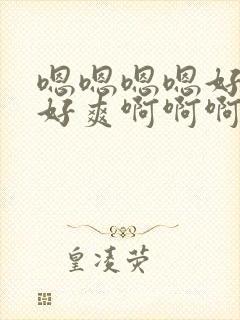 嗯嗯嗯嗯好
好爽啊啊啊
皇凌荧